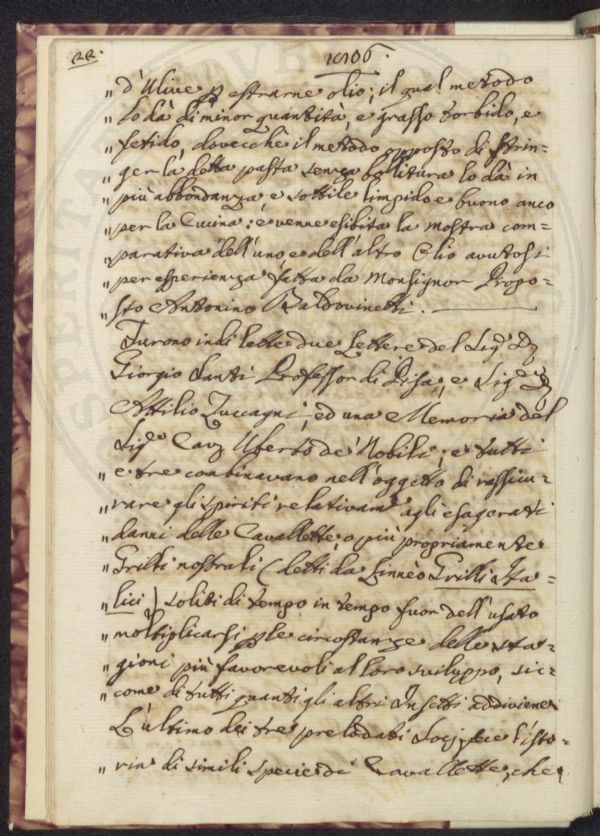 22.
1786.
„ d'Ulive p estrarne olio; il qual metodo
„ lo dà di minor quantità, e grasso torbido, e
„ fetido, dovecchè il metodo opposto di strin-
„ ger la detta pasta senza bollitura lo dà in
„ più abbondanza, e sottile limpido e buono anco
„ per la Cucina; e venne esibita la mostra com-
„ parativa dell'uno e dell'altro Olio avutosi
„ per esperienza fatta da Monsignor Propo-
„ sto Antonino Baldovinetti.
Furono indi lette due Lettere del Sigr Dr
Giorgio Santi Professor di Pisa, e Sigr Dr
Attilio Zuccagni, ed una Memoria del
Sigr Cavr Uberto de' Nobili; e tutti
„ e tre combinavano nell'oggetto di rassicu-
„ rare gli spiriti relativamte agli esagerati
„ danni delle Cavallette, o più propriamente
„ Grilli nostrali (detti da Linnèo Grilli Ita-
„ lici) soliti di tempo in tempo fuor dell'usato
„ moltiplicarsi ple circostanze delle sta-
„ gioni più favorevoli al loro sviluppo, sic-
„ come di tutti quanti gli altri Insetti addiviene
L'ultimo dei tre prelodati Socj fece l'isto-
„ ria di simili specie di Cavallette, che